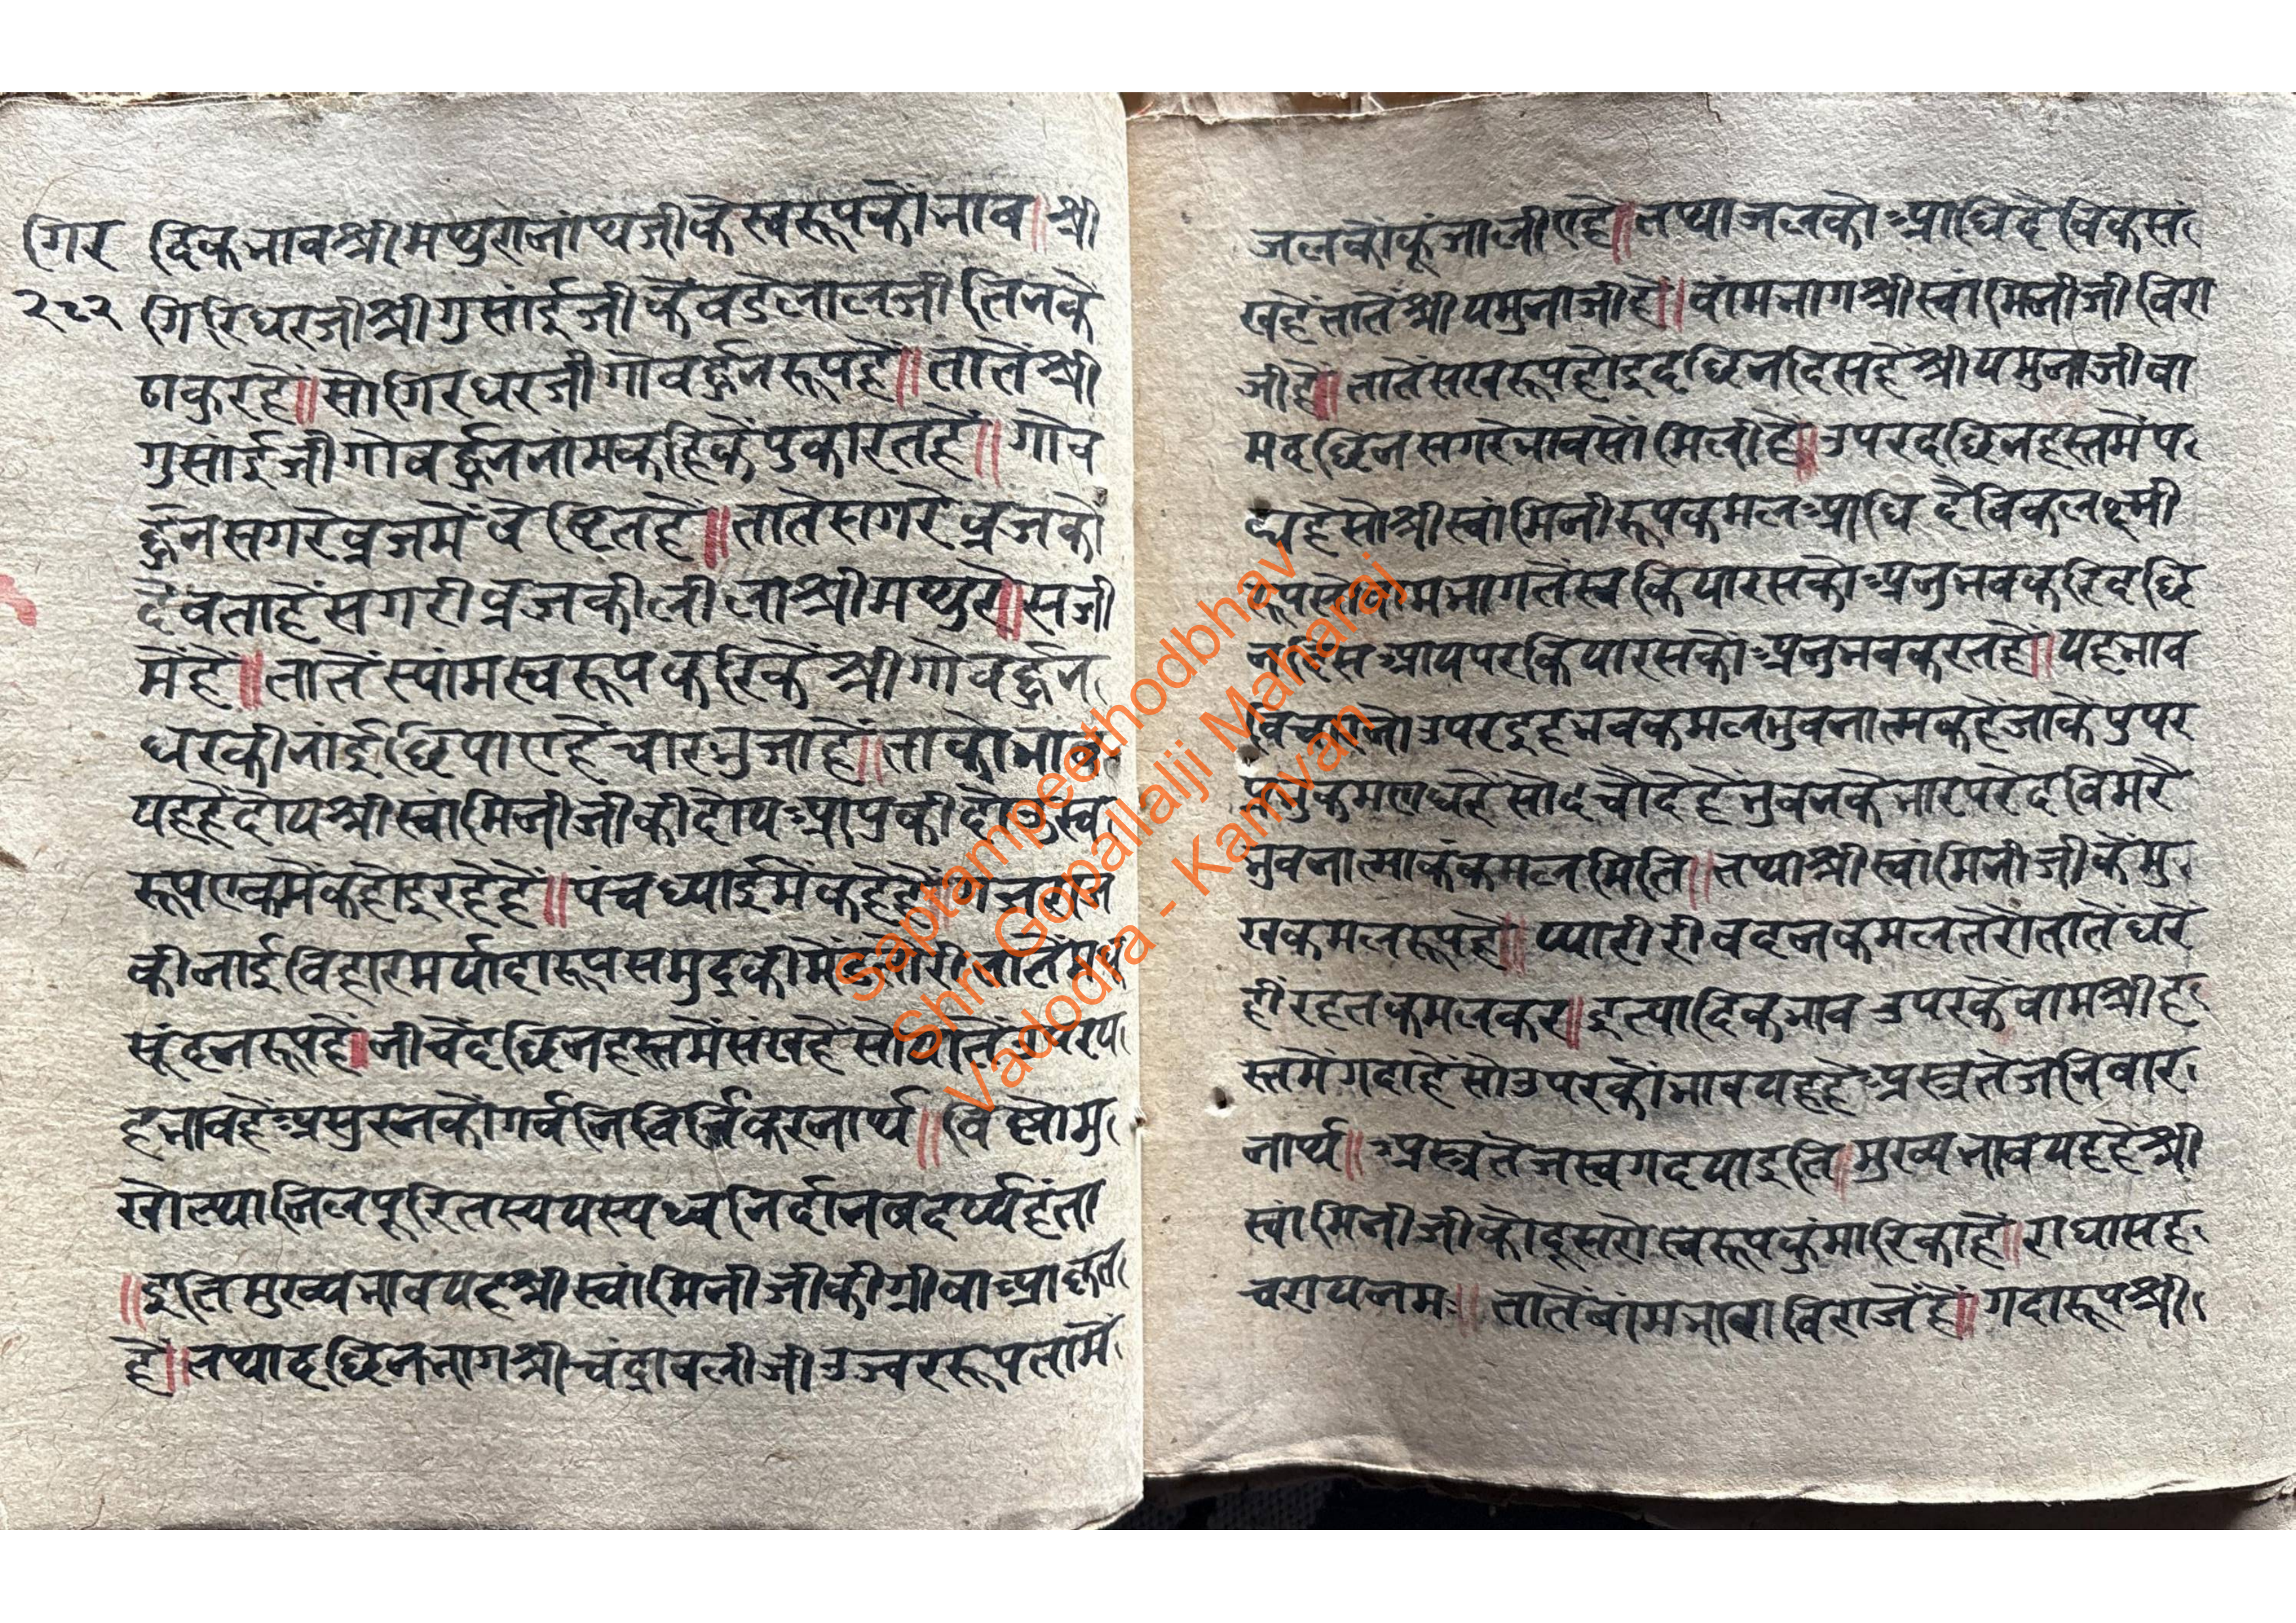 गिर
२८२
दिकभावश्रीमथुरानांथजीकेस्वरूपकौंभाव॥श्री
गिरिधरजीश्रीगुसांईजीकेंवडेलालजीतिनके
ठाकुरहें॥सोगिरधरजीगोवर्द्धनरूपहें॥तातेंश्री
गुसांईजीगोवर्द्धननांमकहिकेंपुकारतहें॥गोव
र्द्धनसगरेव्रजमेंवेष्टितहें॥तातेसगरेव्रजको
देवताहेंसगरीव्रजकीलीलाश्रीमथुरेसजी
मेंहें॥तातेंस्यांमस्वरूपकरिकेंश्रीगोवर्द्धन
धरकीनांईछिपाएहेंचारभुजाहें॥ताकोभाव
यहहेंदोयश्रीस्वांमिनीजीकीदोयआपुकीदोउस्व
रूपएकमेंकहोइरहेहें॥पंचध्याईमेंकहेहें
कीनाईविहारमर्यादारूपसमुद्रकीमेंड
सूंदनरूपहें॥नीचेंदछिनहस्तमेंसंखहेंसो
हभावहेंअमुस्नकोगर्वनिविर्त्तिकरनार्थ॥विष्णोमु
खोत्थानिलपूरितस्ययस्यध्वनिर्दानबदर्प्पहंता
॥इतिमुख्यभावयहश्रीस्वांमिनीजीकीग्रीवाआकृत
हें॥तथादछिनभागश्रीचंद्रावलीजीउज्वररूपतामें
जलकौंकूंजालीएहें॥तथाजलकोआधिदैविकसं
खहेंतातेंश्रीयमुनाजीहें॥वांमभागश्रीस्वांमिनीजीविरा
जीहें॥तातेंसखरूपहोइदछिनदिसहेंश्रीयमुनाजीवा
मदछिनसगरेभावसोंमिलीहें॥उपरदछिनहस्तमेंप
द्महेसोश्रीस्वांमिनीरूपकमलआधिदैविकलक्ष्मी
रूपसोवामभागतेंस्वकियारसकोअनुभवकरिदछि
आयपरकियारसकोअनुभवकरतहें॥यहभाव
उपरइहभवकमलभुवनात्मकहेंजाकेंपुपर
सोदचौदेहेंभुवनकेभारपरेदविमरै
भुवनात्माकंकमलमिति॥तथाश्रीस्वांमिनीजीकेंमु
खकमलरूपहें॥प्यारीरीवदनकमलतेरोतातेंधरें
हींरहतकमलकर॥इत्यादिकभावउपरकेंवामश्रीह
स्तमेंगदाहेंसोउपरकौंभावयहहेंअस्त्रतेजनिवार
नार्थ॥अस्त्रतेजस्वगदयाइति॥मुख्यभावयहहेश्री
स्वांमिनीजीकोदूसरोस्वरूपकुंमारिकाहें॥राधासह
चरायनमः॥तातेंवांमभागविराजेंहें॥गदारूपश्री
Saptampeethodbhav
Shri Gopallalji Maharaj
Vadodra - Kamvan